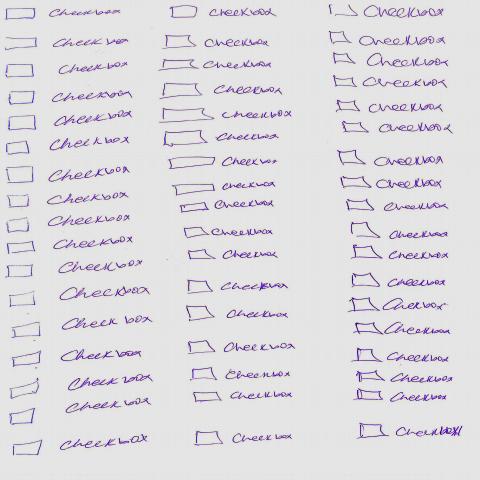 Checkbox
Checkbox
Checkbox
Checkbox
Checkbox
Checkbox
Checkbox
Checkbox
Checkbox
Checkbox
Checkbox
Checkbox
Checkbox
Checkbox
Checkbox
Checkbox
Checkbox
Checkbox
Checkbox
Checkbox
Checkbox
Checkbox
Checkbox
Checkbox
Checkbox
Checkbox
Checkbox
Checkbox
Checkbox
Checkbox
Checkbox
Checkbox
Checkbox
Checkbox
Checkbox
Checkbox
Checkbox
Checkbox
Checkbox
Checkbox
Checkbox
Checkbox
Checkbox
Checkbox
Checkbox
Checkbox
Checkbox
Checkbox
Checkbox
Checkbox
Checkbox
Checkbox